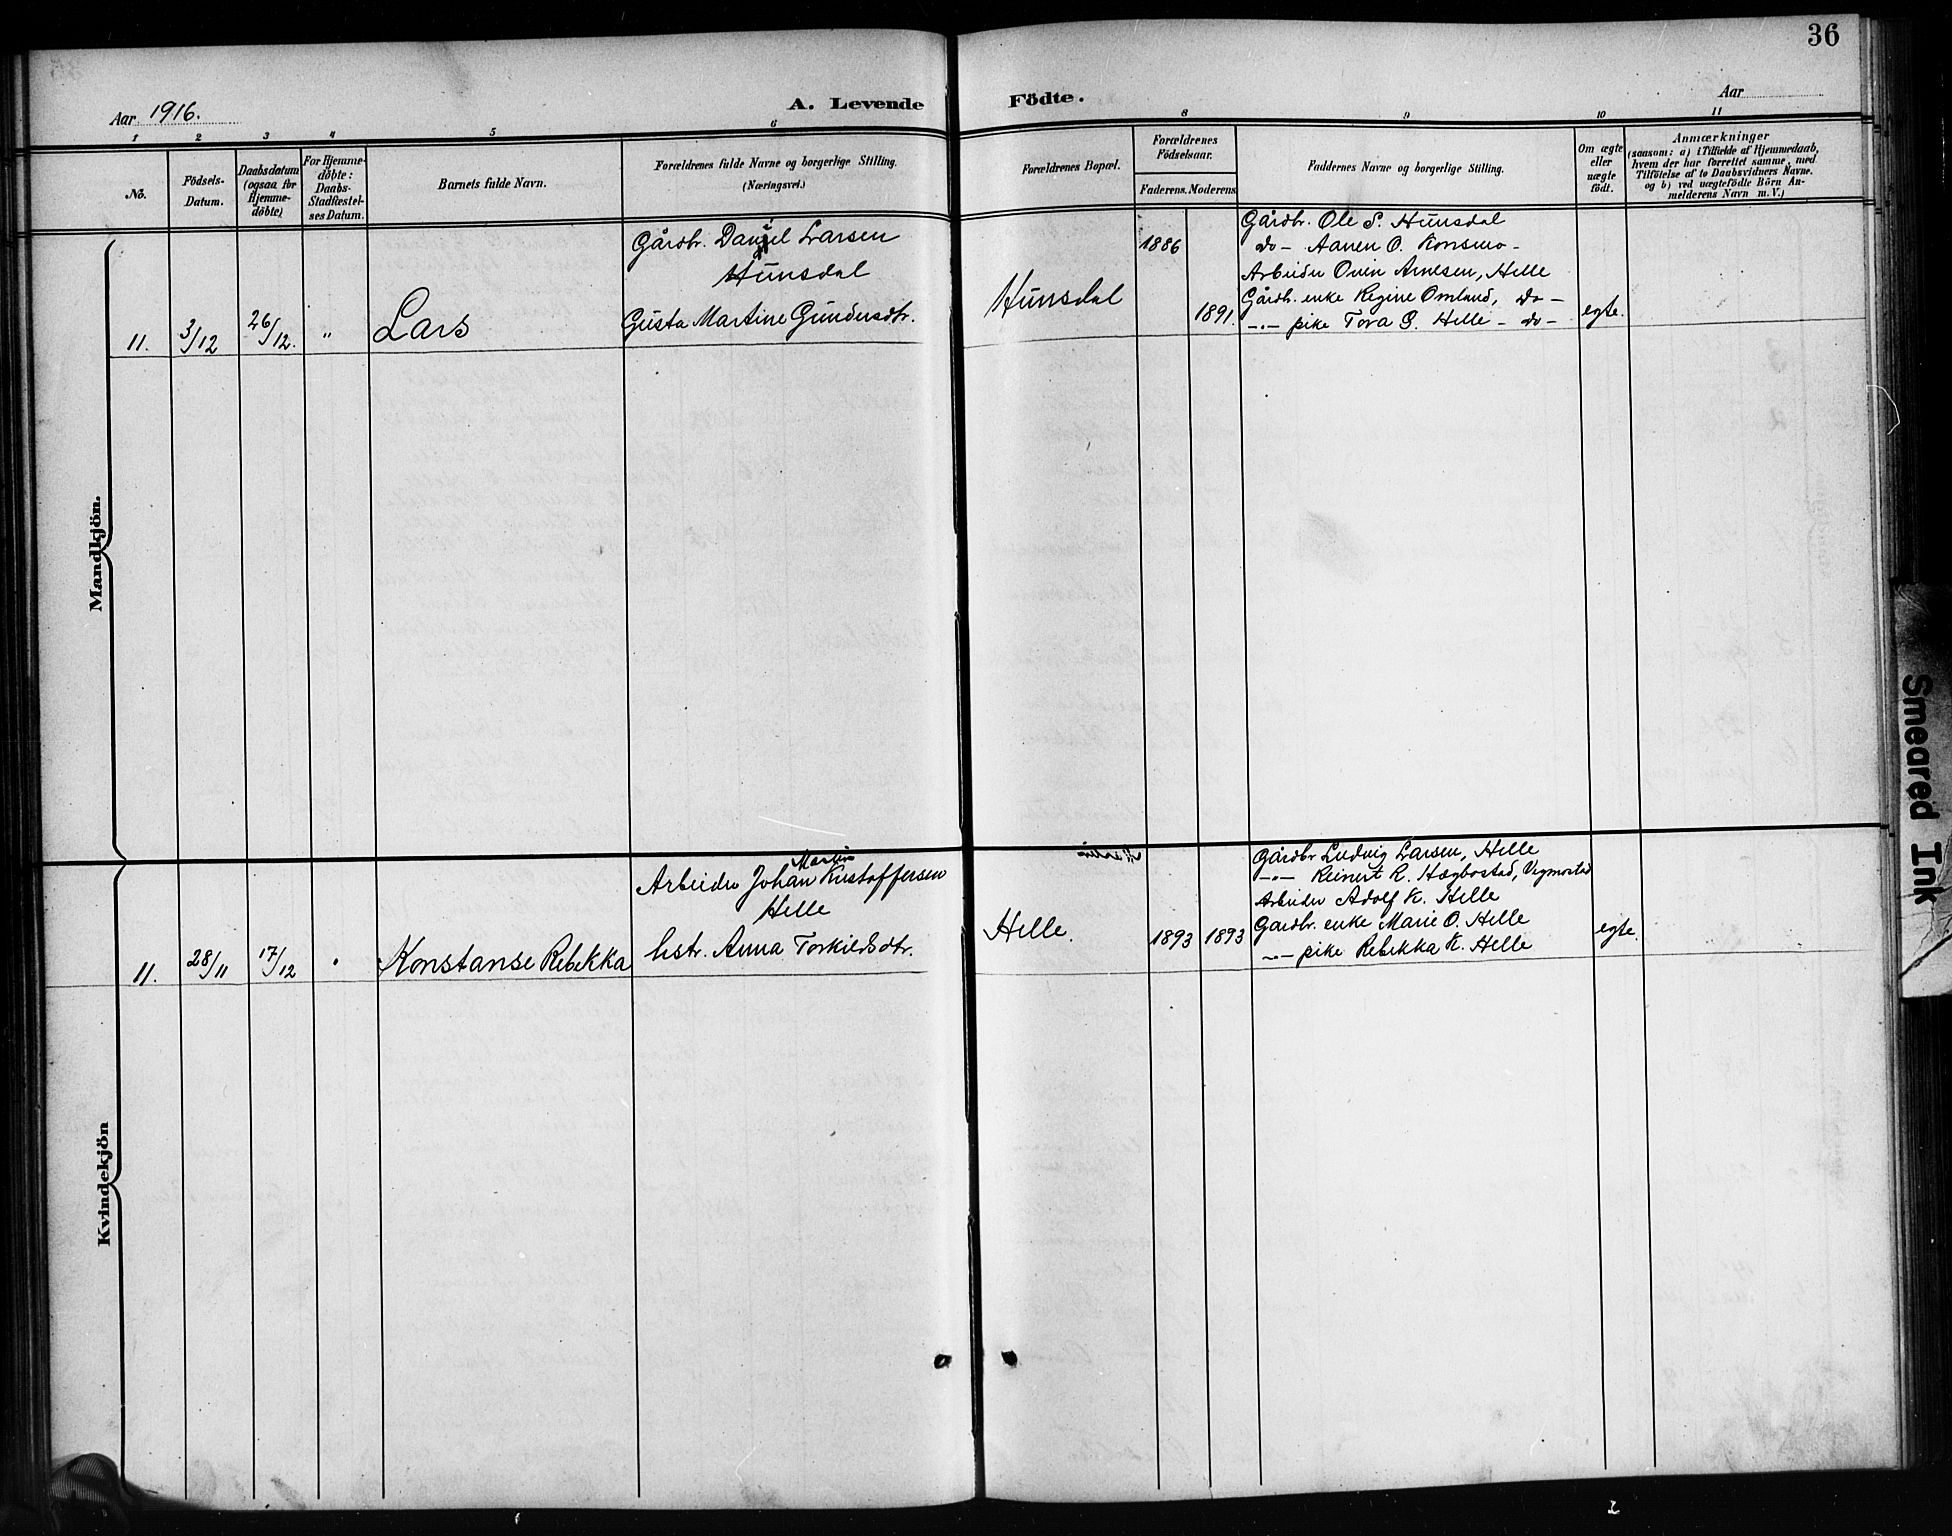 36
Aar 1916.
A. Levende Födte.
Aar
1 2 3 4 5 6 8 9 10 11
No.
Födsels-Datum.
Daabsdatum (ogsaa for Hjemme-döbte)
For Hjemme-döbte: Daabs-Stadfæstel-ses Datum.
Barnets fulde Navn.
Forældrenes fulde Navne og borgerlige Stilling.
(Næringsvei.)
Forældrenes Bopæl.
Forældrenes Födselsaar.
Faderens. Moderens
Faddernes Navne og borgerlige Stilling.
Om ægte eller uægte födt.
Anmærkninger
(saasom: a) i Tilfælde af Hjemmedaab,
hvem der har forrettet samme, med
Tilföielse af to Daabsvidners Navne.
og b) ved uægtefödte Börn An-
melderens Navn m. V.)
Mandkjön.
11. 3/12 26/12. " Lars
Gårdbr. Daniel Larsen
Hunsdal
Gusta Martine Gundersdtr.
Hunsdal
1886
1891.
Gårdbr. Ole S. Hunsdal
do - Aanen O. Konsmo -
Arbeider Ovin Arnesen, Helle
Gårdb. enke Regine Omland, do -
-"- pike Tora G. Helle - do -
egte.
Kvindekjön
11. 28/11 17/12 " Konstanse Rebekka
Martin
Arbeider Johan Kristoffersen
Helle
hstr. Anna Torkildsdtr.
Helle.
1893 1893
Gårdbr Ludvig Larsen, Helle
-"- Reinert R. Hægbostad, Vigmostad
Arbeider Adolf K. Helle
Gardbr. enke Marie O. Helle
-"- pike Rebekka K. Helle
egte.
Smeared Ink